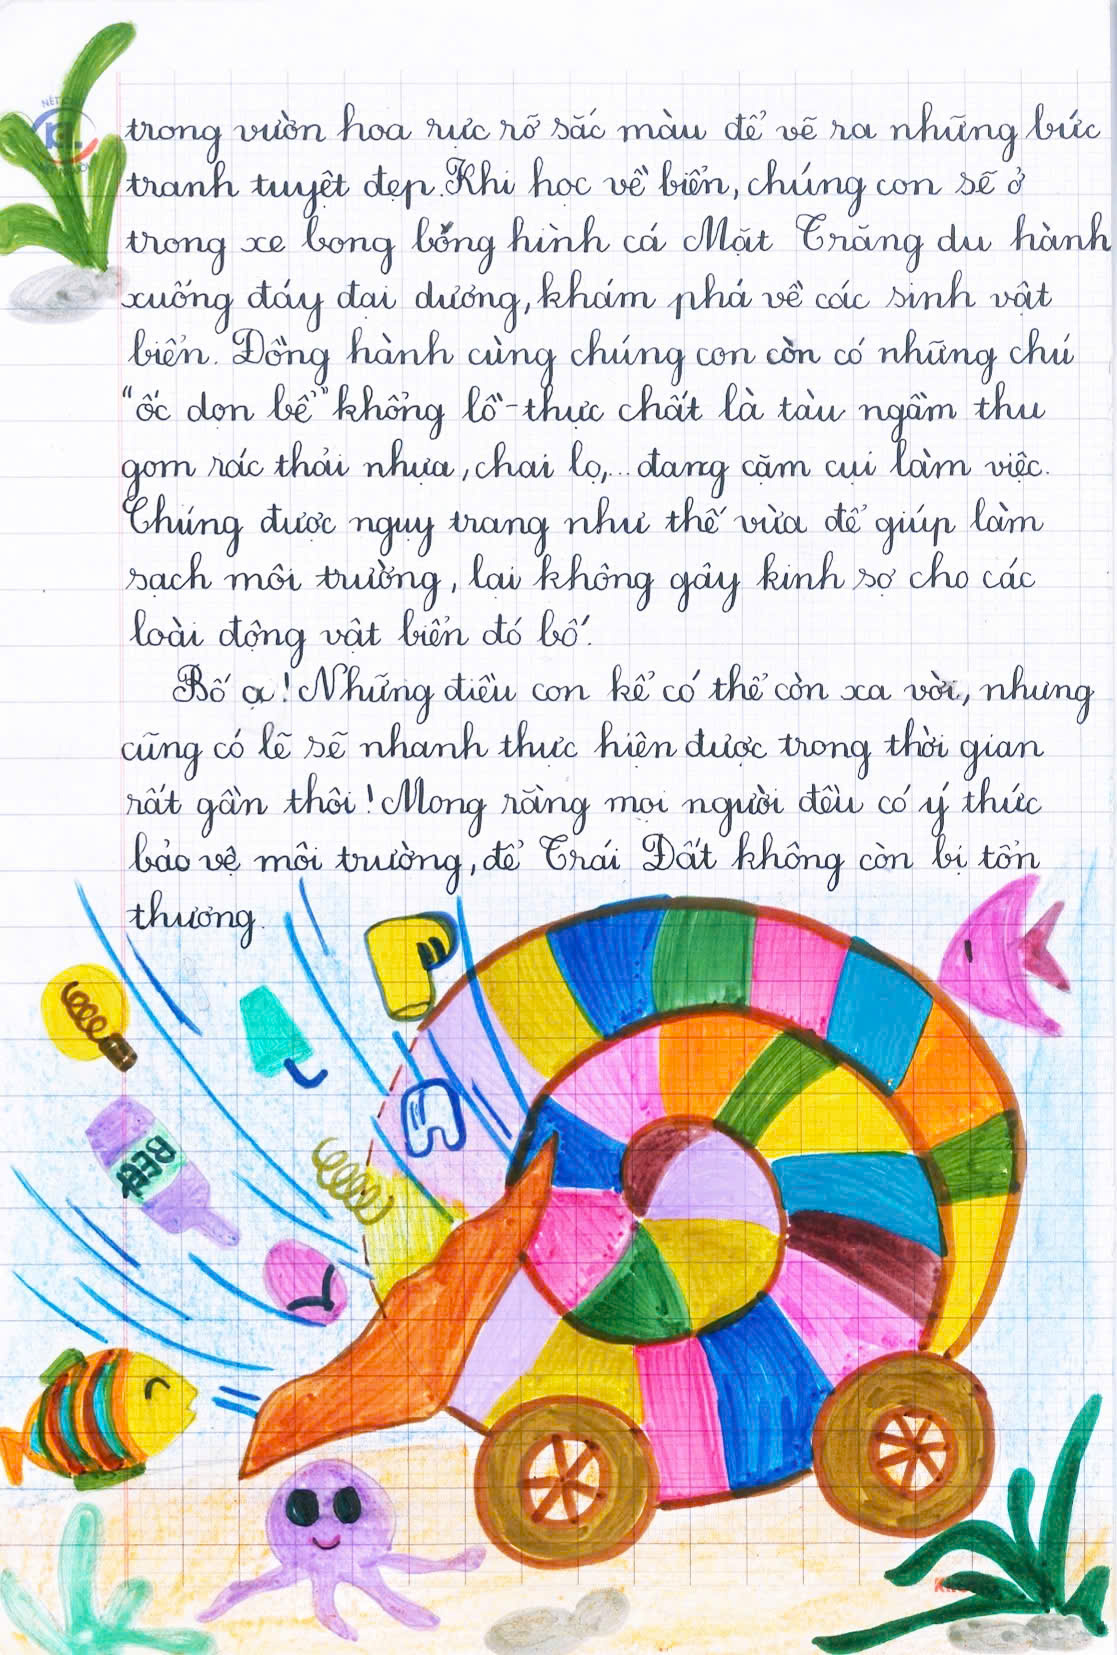 trong vườn hoa rực rỡ sắc màu để vẽ ra những bức
tranh tuyệt đẹp. Khi học về biển, chúng con sẽ ở
trong xe bong bóng hình cá Mặt Trăng du hành
xuống đáy đại dương, khám phá về các sinh vật
biển. Đồng hành cùng chúng con còn có những chú
“ốc dọn bể” khổng lồ - thực chất là tàu ngầm thu
gom rác thải nhựa, chai lọ,... đang cặm cụi làm việc.
Chúng được ngụy trang như thế vừa để giúp làm
sạch môi trường, lại không gây kinh sợ cho các
loài động vật biển đó bố.
Bố ạ! Những điều con kể có thể còn xa vời, nhưng
cũng có lẽ sẽ nhanh thực hiện được trong thời gian
rất gần thôi! Mong rằng mọi người đều có ý thức
bảo vệ môi trường, để Trái Đất không còn bị tổn
thương.
BEER